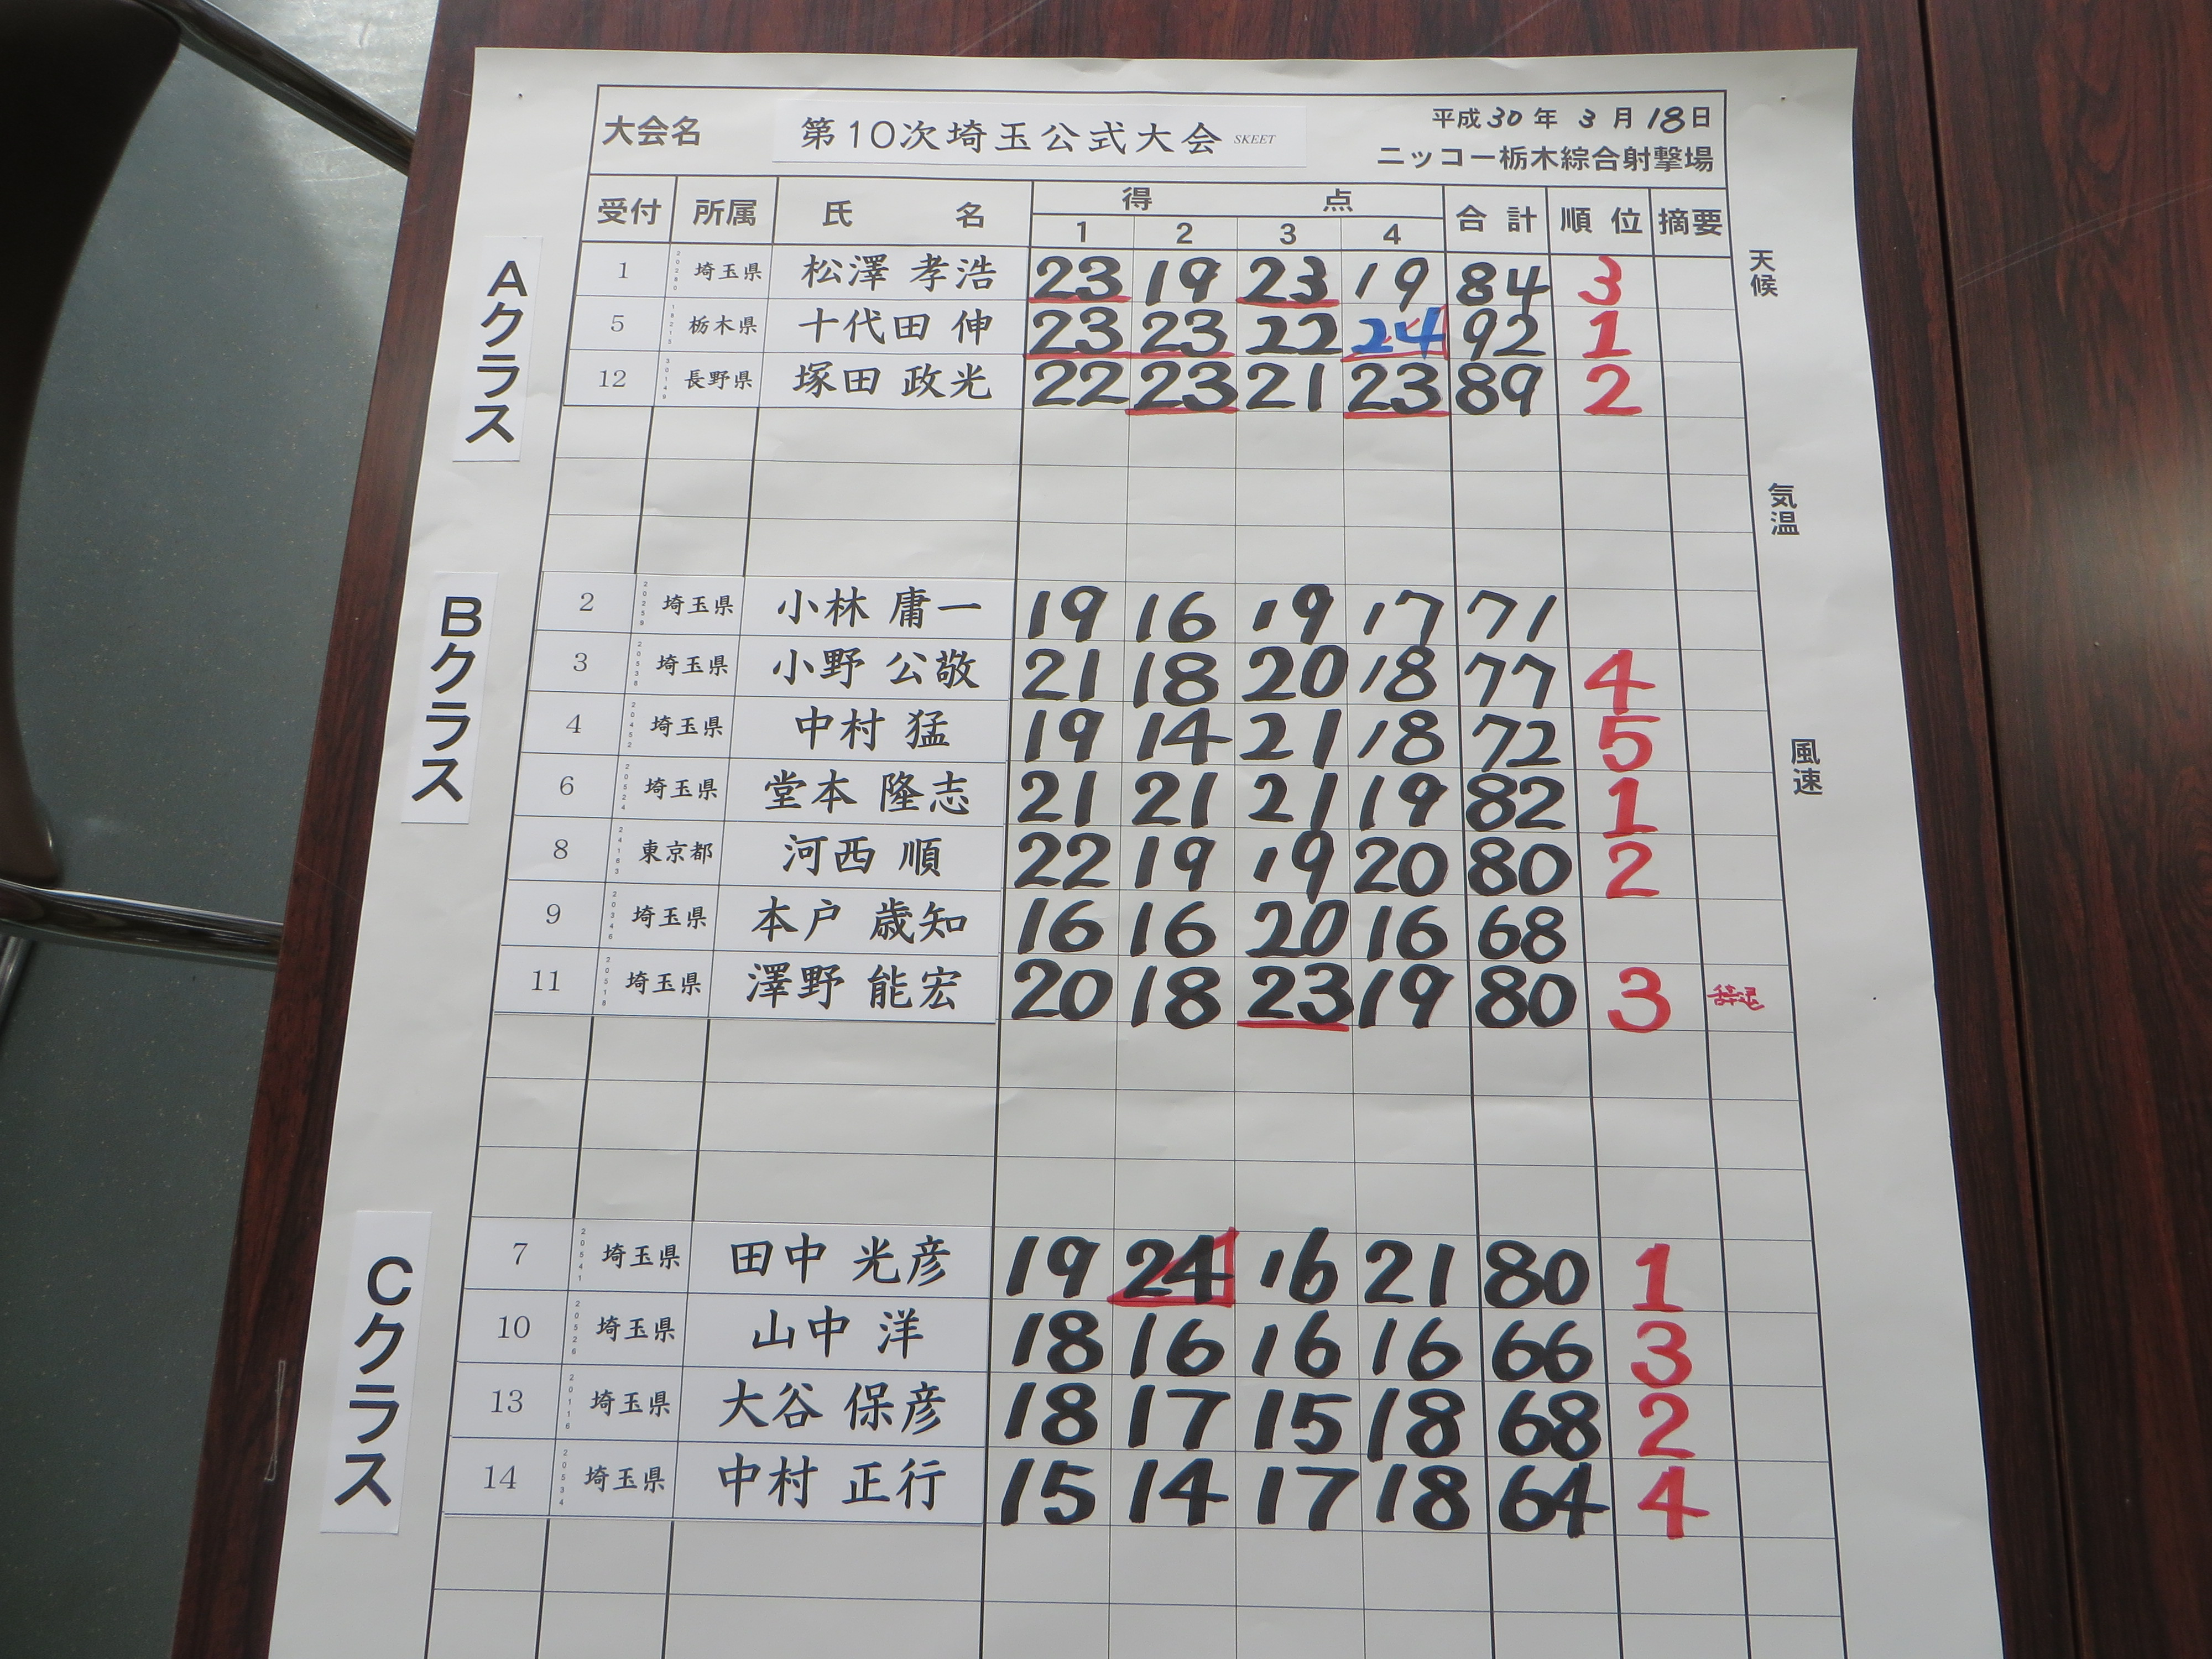 大会名 第10次埼玉公式大会 SKEET 平成30年 3月18日
ニッコー栃木綜合射撃場
受付 所属 氏 名 得 点 合計 順位 摘要
1 2 3 4
Aクラス
1 埼玉県 松澤 孝浩 23 19 23 19 84 3
5 栃木県 十代田 伸 23 23 22 24 92 1
12 長野県 塚田 政光 22 23 21 23 89 2
Bクラス
2 埼玉県 小林 庸一 19 16 19 17 71
3 埼玉県 小野 公敬 21 18 20 18 77 4
4 埼玉県 中村 猛 19 14 21 18 72 5
6 埼玉県 堂本 隆志 21 21 21 19 82 1
8 東京都 河西 順 22 19 19 20 80 2
9 埼玉県 本戸 歳知 16 16 20 16 68
11 埼玉県 澤野 能宏 20 18 23 19 80 3
Cクラス
7 埼玉県 田中 光彦 19 24 16 21 80 1
10 埼玉県 山中 洋 18 16 16 16 66 3
13 埼玉県 大谷 保彦 18 17 15 18 68 2
14 埼玉県 中村 正行 15 14 17 18 64 4
天候
気温
風速